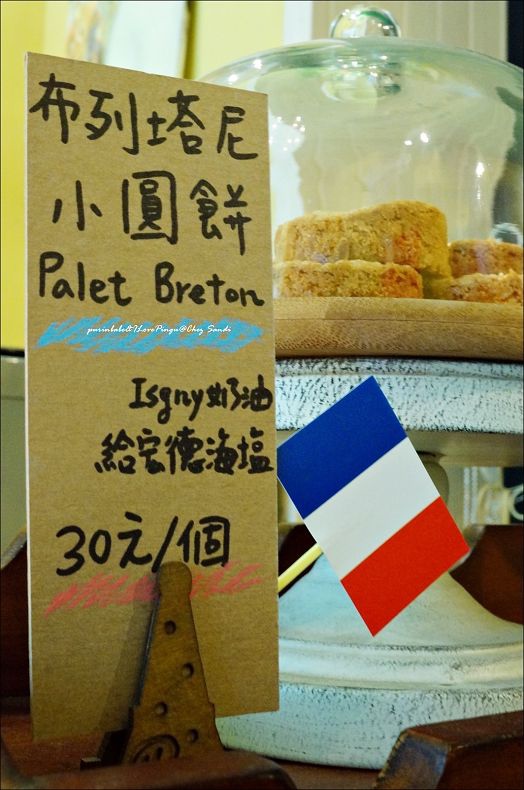 布列塔尼
小圓餅
Palet Breton
purinbabe&ILovePingu@Chez Sandi
Isgny奶油
給宏德海塩
30元/個